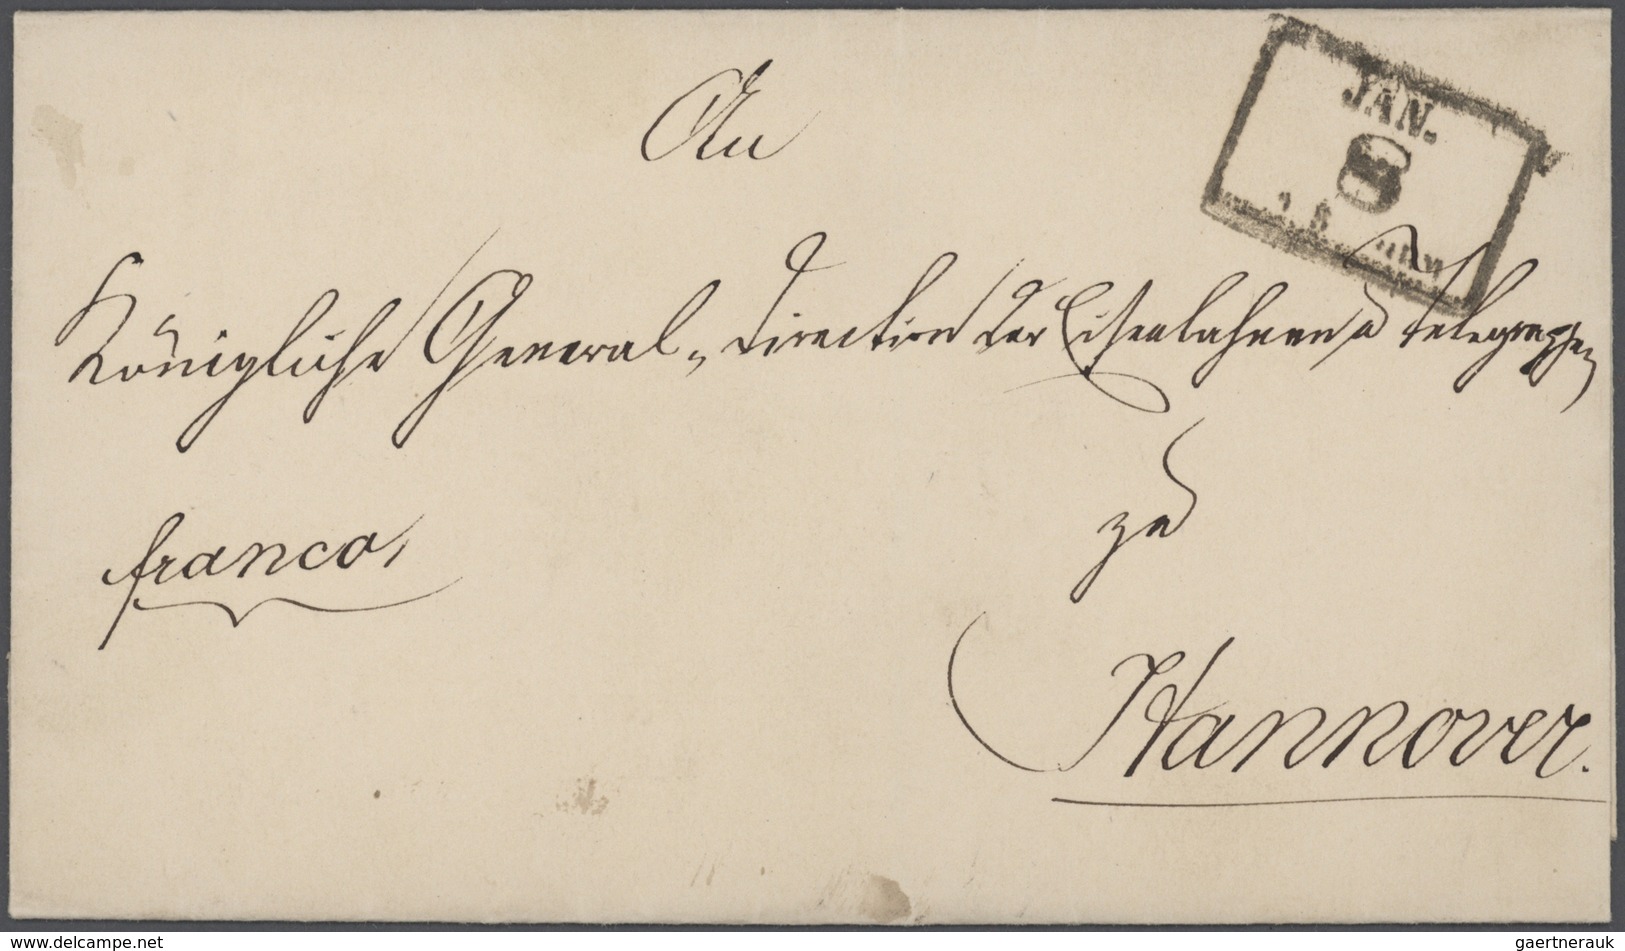 An
JAN.
8
Königliche General-Direction der Eisenbahnen u Telegraphen
franco,
zu
Hannover.
www.delcampe.net
gaertnerauk